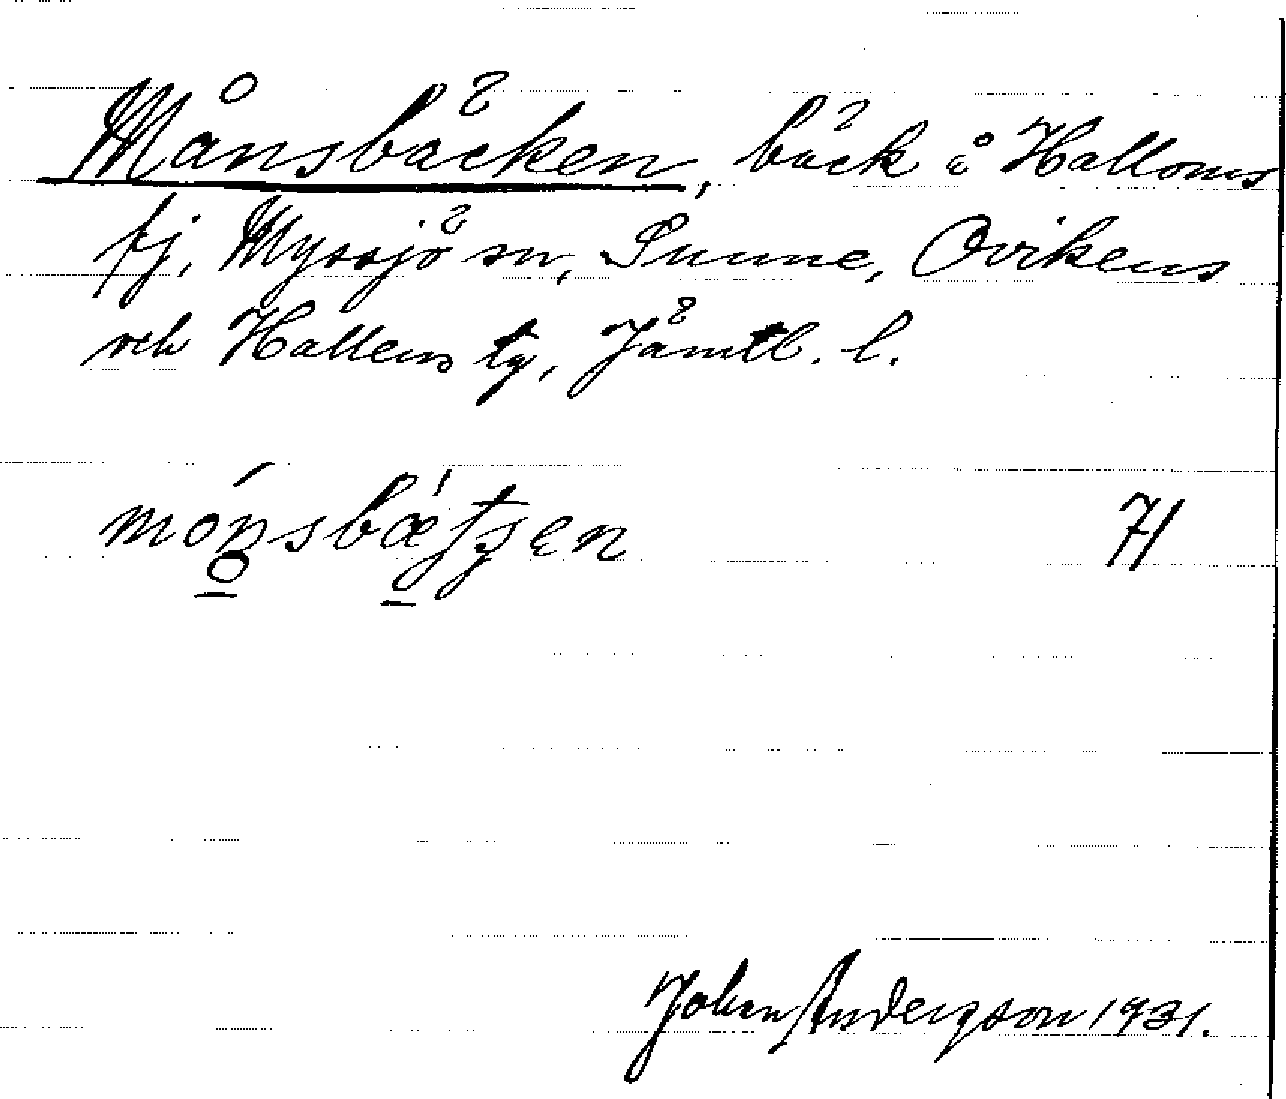 Månsbäcken, bäck å Halloms
fj, Myssjö sn, Sunne, Ovikens
och Hallens tg, Jämtl. l.
mónsbǽtʂen
71
Johan Andersson 1931.